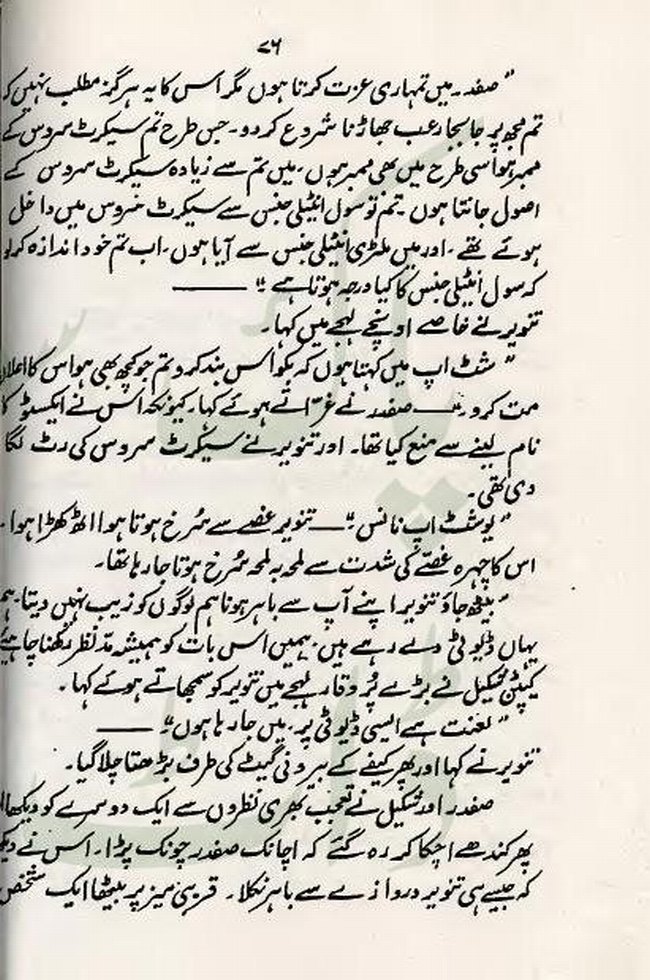 ۷۶
"صفدر۔ میں تمہاری عزت کرتا ہوں مگر اس کا یہ ہرگز مطلب نہیں کہ
تم مجھ پر جا بیجا رعب جھاڑنا شروع کر دو۔ جس طرح تم سیکرٹ سروس کے
ممبر ہو اسی طرح میں بھی ممبر ہوں۔ میں تم سے زیادہ سیکرٹ سروس کے
اصول جانتا ہوں۔ تم تو سول انٹیلی جنس سے سیکرٹ سروس میں داخل
ہوئے تھے۔ اور میں ملٹری انٹیلی جنس سے آیا ہوں۔ اب تم خود اندازہ کر لو
کہ سول انٹیلی جنس کا کیا درجہ ہوتا ہے"۔ ———
تنویر نے خاصے اونچے لہجے میں کہا۔
"شٹ اپ میں کہتا ہوں کہ بکواس بند کرو تم جو کچھ بھی ہو اس کا اعلان
مت کرو"۔ —— صفدر نے غرّاتے ہوئے کہا۔ کیونکہ اس نے ایکسٹو کا
نام لینے سے منع کیا تھا۔ اور تنویر نے سیکرٹ سروس کی رٹ لگا
دی تھی۔
"یو شٹ اپ نانس"۔ —— تنویر غصے سے سُرخ ہوتا ہوا اٹھ کھڑا ہوا۔
اس کا چہرہ غصّے کی شدت سے لمحہ بہ لمحہ سُرخ ہوتا جا رہا تھا۔
"بیٹھ جاؤ تنویر اپنے آپ سے باہر ہونا ہم لوگوں کو زیب نہیں دیتا۔ ہم
یہاں ڈیوٹی دے رہے ہیں۔ ہمیں اس بات کو ہمیشہ مدّنظر رکھنا چاہیئے
کیپٹن شکیل نے بڑے پُر وقار لہجے میں تنویر کو سمجھاتے ہوئے کہا۔
"لعنت ہے ایسی ڈیوٹی پر۔ میں جا رہا ہوں"۔ ———
تنویر نے کہا اور پھر کیفے کے بیرونی گیٹ کی طرف بڑھتا چلا گیا۔
صفدر اور شکیل نے تعجب بھری نظروں سے ایک دوسرے کو دیکھا
پھر کندھے اچکا کر رہ گئے کہ اچانک صفدر چونک پڑا۔ اس نے
کہ جیسے ہی تنویر دروازے سے باہر نکلا۔ قریبی میز پر بیٹھا ایک شخص